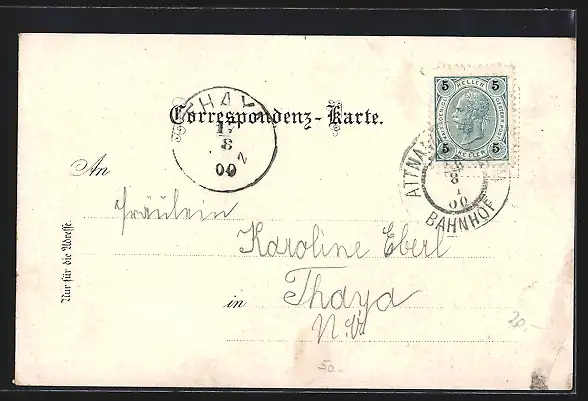 5 HELLER 5
5 5
THAYA
17
8
00
Correspondenz-Karte.
ATTNA
8
00
BAHNHOF
An
Fräulein
Karoline Eberl
in Thaya
N.Ö.
Nur für die Adresse.
20,-
50.-